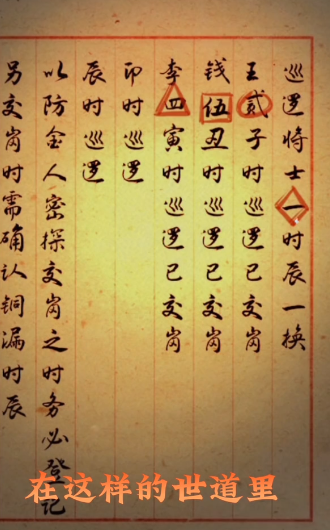 巡逻将士一时辰一换
王贰子时巡逻已交岗
钱伍丑时巡逻已交岗
李四寅时巡逻已交岗
卯时巡逻
辰时巡逻
以防金人密探交岗之时务必登记
另交岗时需确认铜漏时辰
在这样的世道里